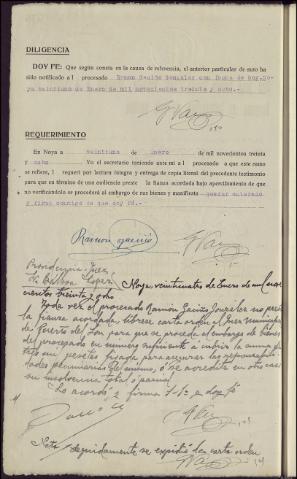 DILIGENCIA
DOY FE: Que según consta en la causa de referencia, el anterior particular de auto ha
sido notificado a l procesado Ramon Gaciño Gonzalez con fecha de hoy.No-
ya veintiuno de Enero de mil novecientos treinta y ocho.
REQUERIMIENTO
En Noya a veintiuno de Enero de mil novecientos treinta
y ocho Yo el secretario teniendo ante mi a l procesado a que este ramo
se refiere, l requerí por lectura íntegra y entrega de copia literal del precedente testimonio
para que en término de una audiencia preste la fianza acordada bajo apercibimiento de que
no verificándolo se procederá al embargo de sus bienes y manifiesta quedar enterado
y firma conmigo de que doy fé.
Ramón gaciño
Providencia Juez
Noya veinticuatro de Enero de mil nove-
cientos treinta y ocho
Toda vez el procesado Ramón Gaciño González no prestó
la fianza acordada, líbrese carta orden al Juez municipal
de Puerto del Son para que se proceda al embargo de bienes
del procesado en número suficiente a cubrir la suma de
pesetas fijada para asegurar las responsabili-
dades pecuniarias del mismo, o se acredite en otro caso
su insolvencia total o parcial
Lo acordó y firma S.Sª doy fé
Nota Seguidamente se expidió la carta orden